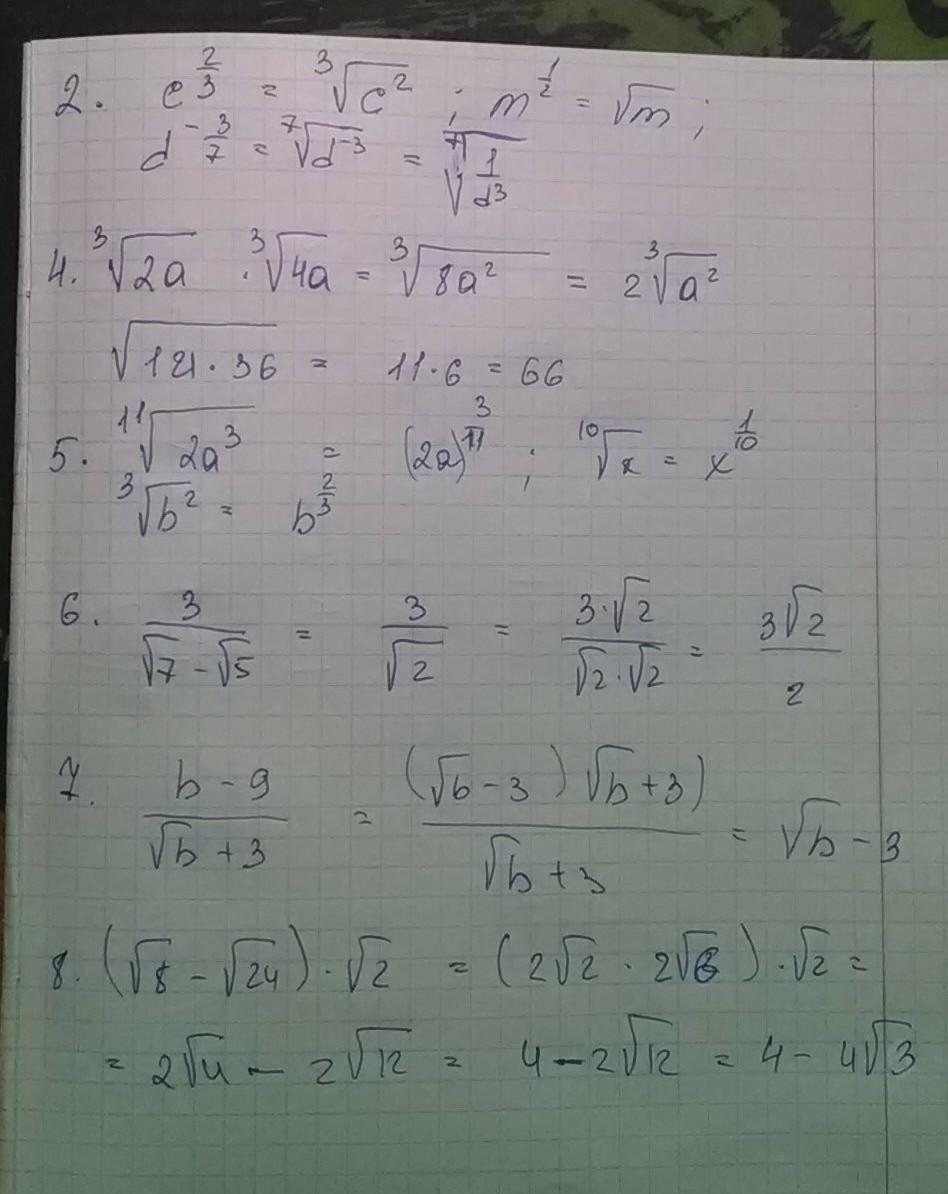 2. c^{2/3} = ∛c² ; m^{1/2} = √m ;
d^{-3/7} = ⁷√d⁻³ = ⁷√(1/d³)
4. ∛2a · ∛4a = ∛8a² = 2∛a²
√121·36 = 11·6 = 66
5. ¹¹√2a³ = (2a)^{3/11} ; ¹⁰√x = x^{1/10}
∛b² = b^{2/3}
6. 3/(√7-√5) = 3/√2 = 3·√2/(√2·√2) = 3√2/2
7. (b-9)/(√b+3) = (√b-3)√b+3)/(√b+3) = √b-3
8. (√8-√24)·√2 = (2√2·2√6)·√2 =
= 2√4-2√12 = 4-2√12 = 4-4√3